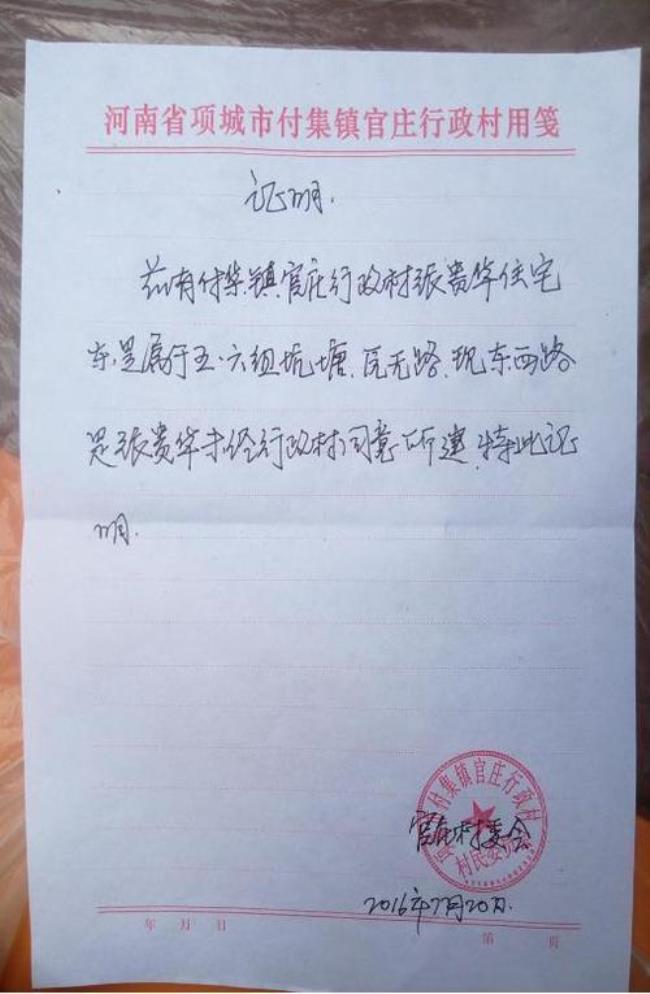 河南省项城市付集镇官庄行政村用笺
证明.
兹有付集镇官庄行政村张贵华住宅
东,是属于五.六组坑塘.原无路.现东西路
是张贵华未经行政村同意所建.特此证
明.
付集镇官庄行政村
村民委员会
官庄村委会
2016年7月20日.
年 月 日
第 页